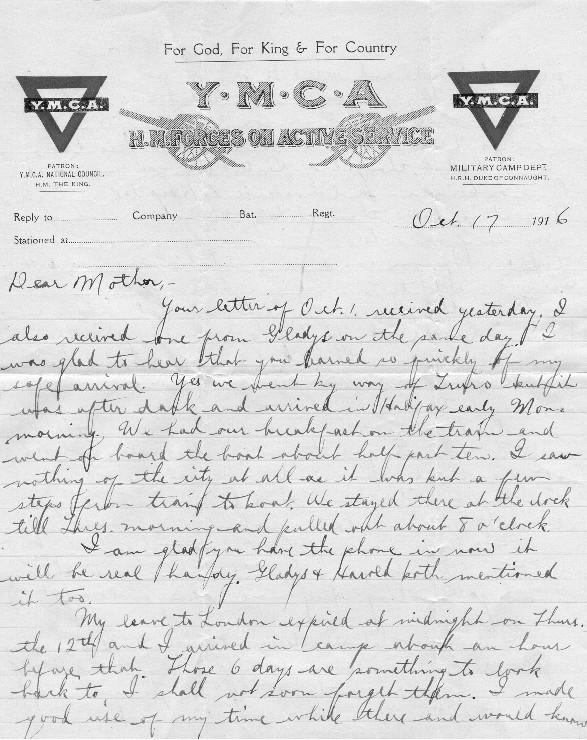 For God, For King & For Country
Y·M·C·A
H.M. FORCES ON ACTIVE SERVICE
Y.M.C.A.
PATRON:
Y.M.C.A. NATIONAL COUNCIL.
H.M. THE KING.
Y.M.C.A.
PATRON:
MILITARY CAMP DEPT.
H.R.H. DUKE OF CONNAUGHT.
Reply to Company Bat. Regt. Oct. 17 1916
Stationed at
Dear Mother,-
Your letter of Oct. 1. received yesterday. I
also received one from Gladys on the same day. I
was glad to hear that you learned so quickly of my
safe arrival. Yes we went by way of Truro but it
was after dark and arrived in Halifax early Mon.
morning. We had our breakfast on the train and
went on board the boat about half past ten. I saw
nothing of the city at all as it was but a few
steps from train to boat. We stayed there at the dock
till Tues. morning and pulled out about 8 o'clock.
I am glad you have the phone in now it
will be real handy. Gladys & Harold both mentioned
it too.
My leave to London expired at midnight on Thurs.
the 12th and I arrived in camp about an hour
before that. Those 6 days are something to look
back to, I shall not soon forget them. I made
good use of my time while there and would know